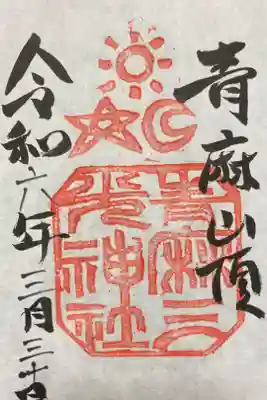 青麻山頂
青麻三
光神社
令和六年三月三十日